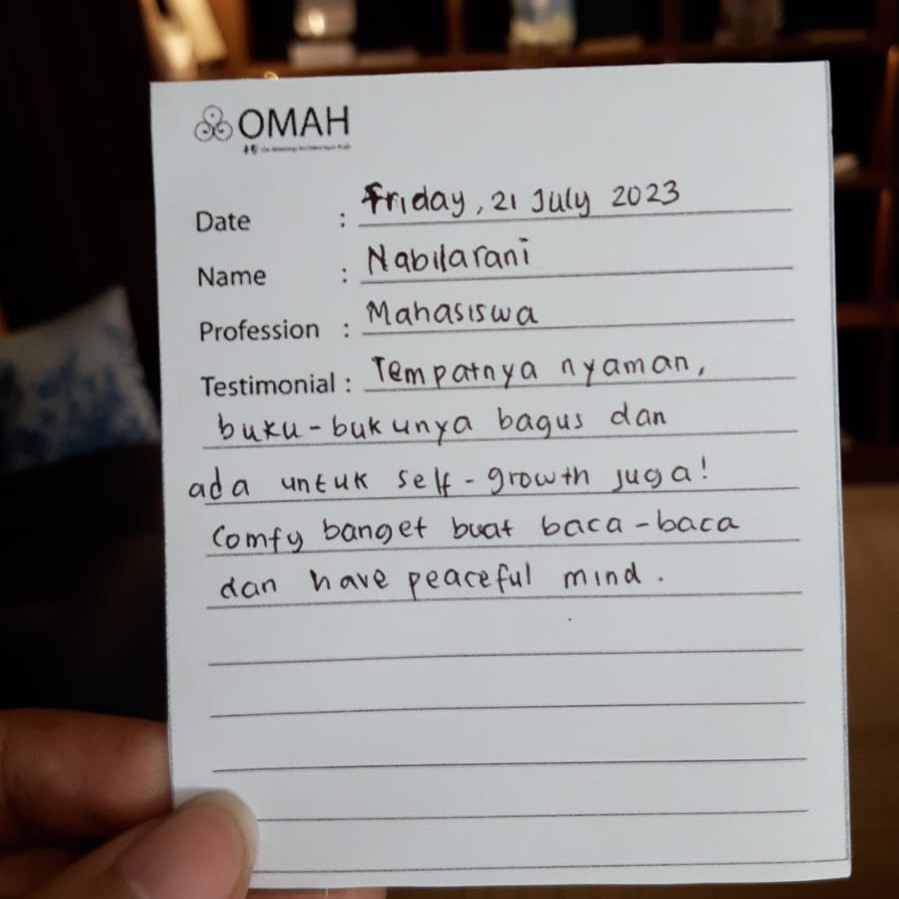 OMAH
Date : Friday, 21 July 2023
Name : Nabilarani
Profession : Mahasiswa
Testimonial : Tempatnya nyaman,
buku-bukunya bagus dan
ada untuk self-growth juga!
Comfy banget buat baca-baca
dan have peaceful mind.